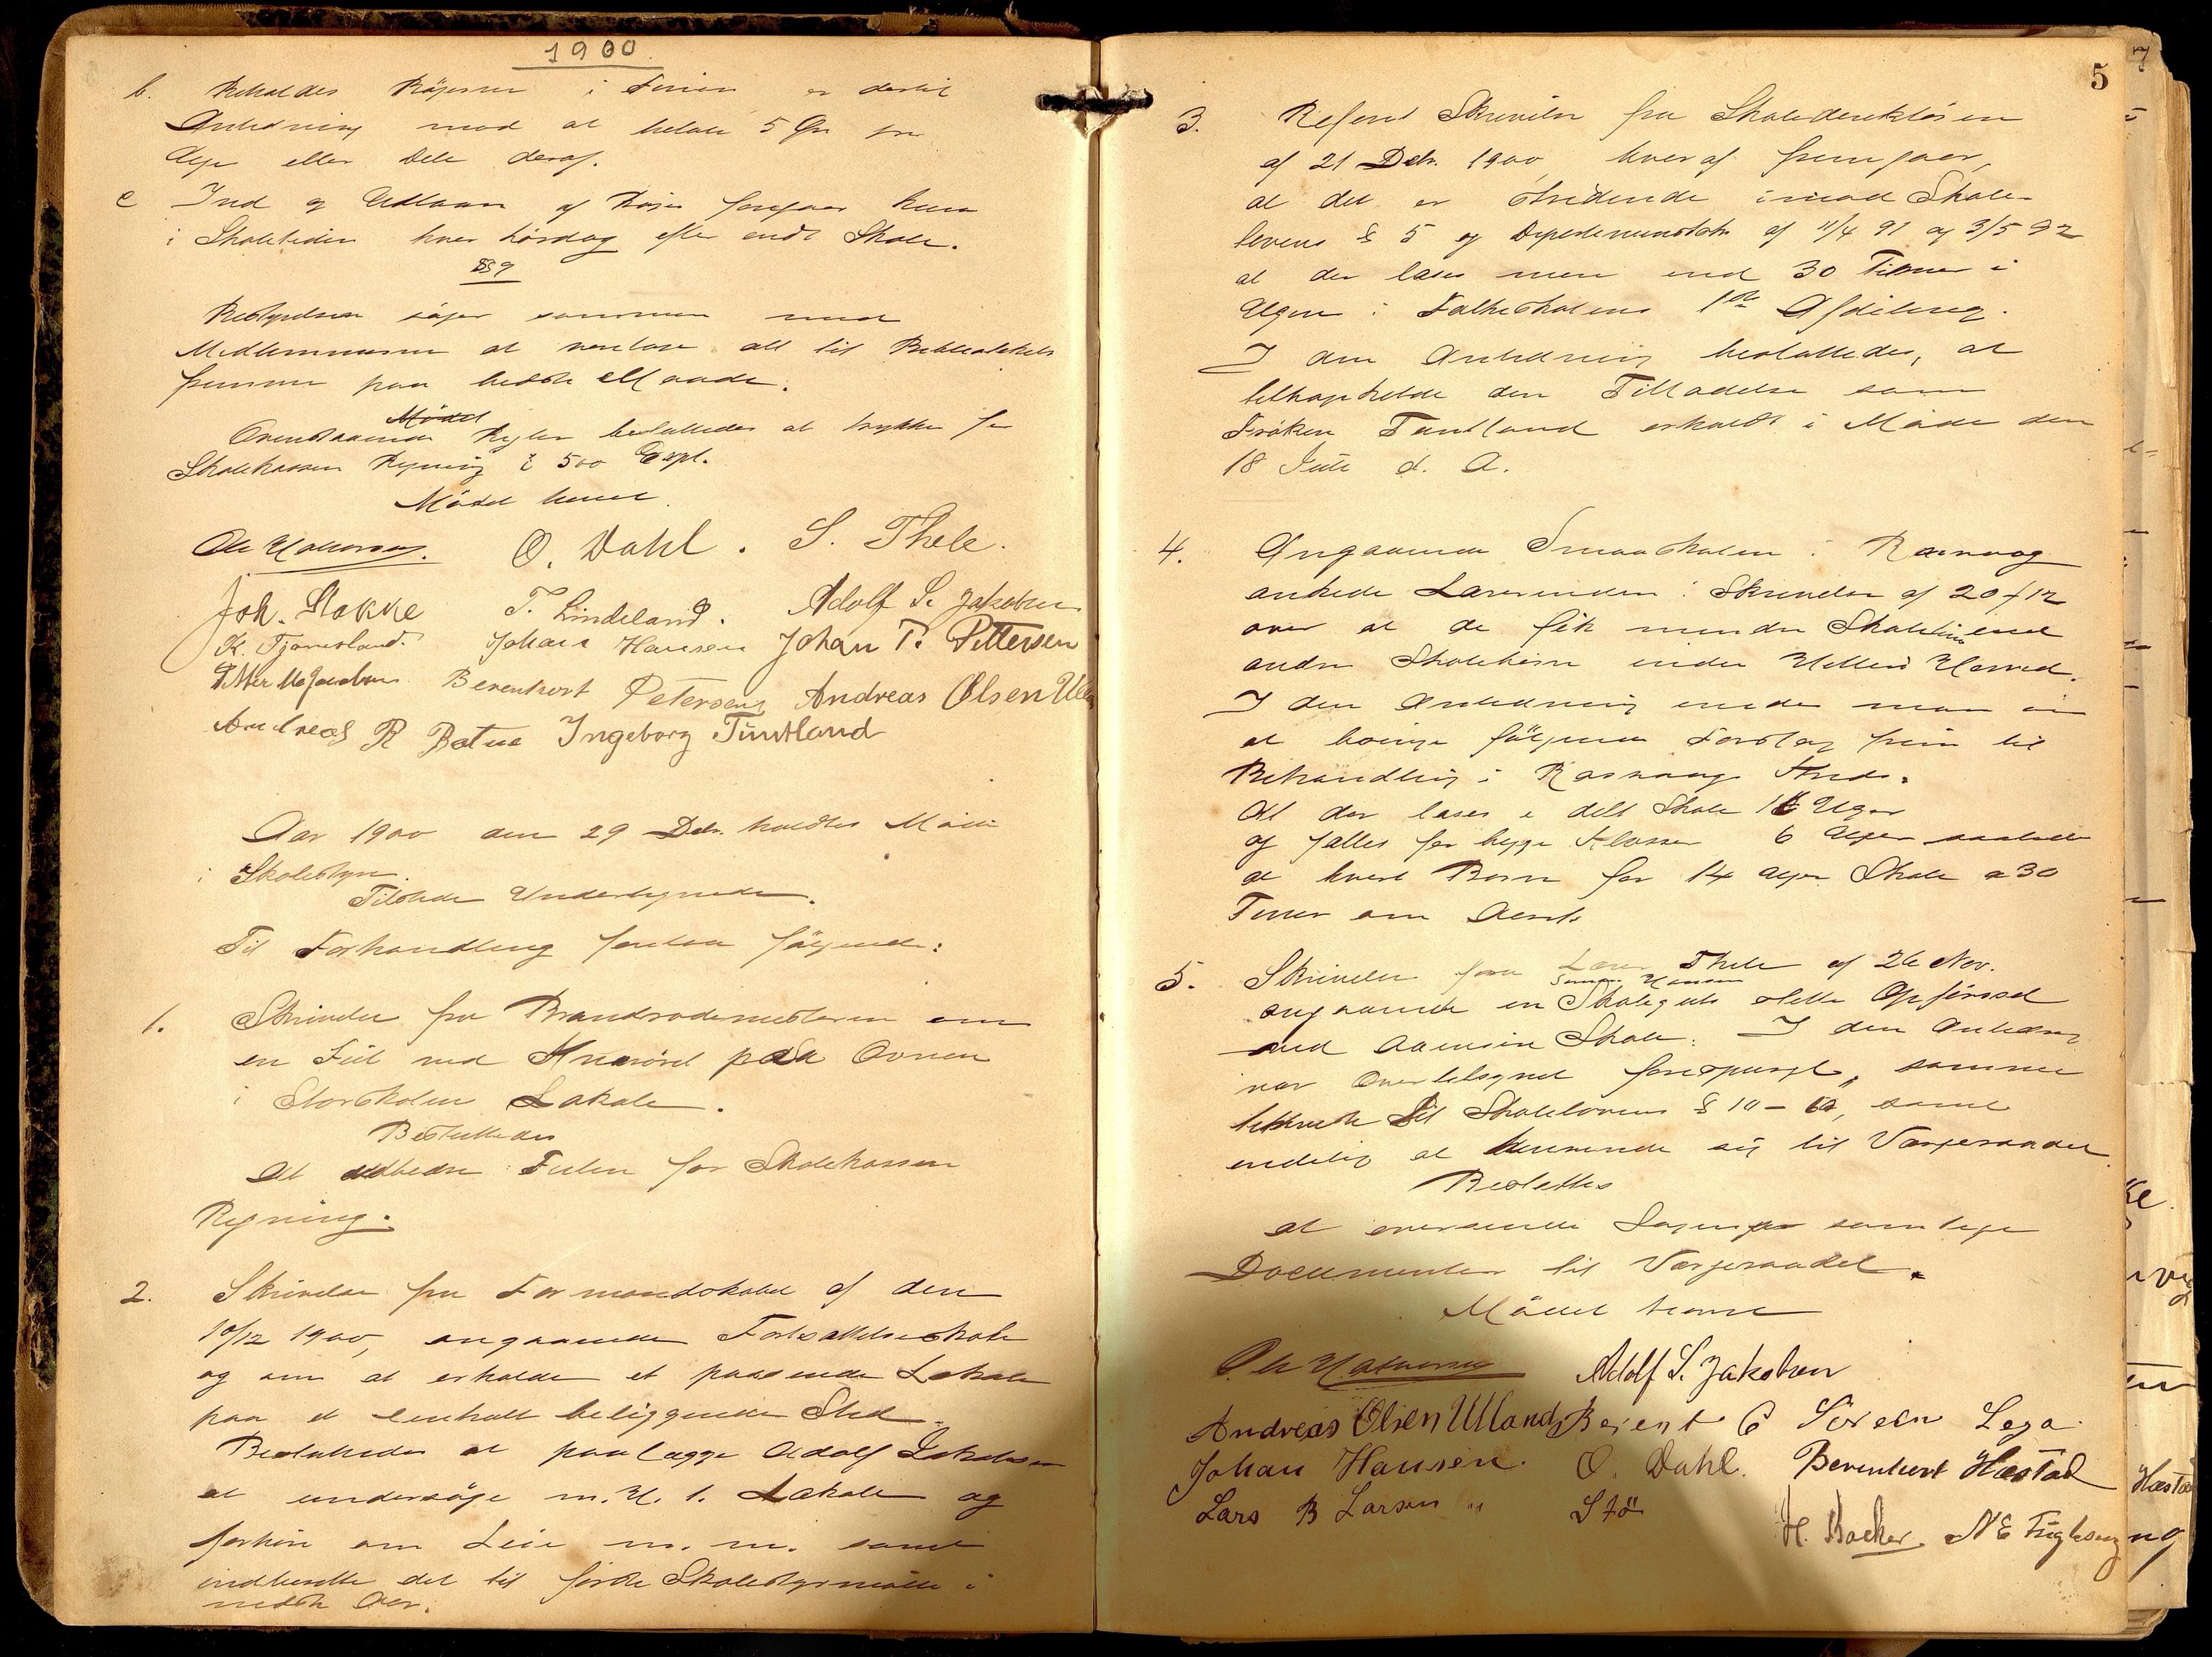 1900
b. Beholdes Bøgerne i Ferien er dertil
Anledning mod at betale 5 Øre pr
Uge eller Dele deraf.
c Ind og Udlaan af Bøger foregaar kun
i Skoletiden hver Lørdag efter endt Skole.
§ 9
Bestyrelsen søger sammen med
Medlemmerne at varetage alt til Bibliothekets
fremme paa bedste Maade.
Ovenstaaende Regler besluttedes at trykke for
Skolekassens Regning i 500 Expl.
Mødet hævet
O. Dahl. S. Thele.
Joh. Stakke T. Lindeland. Adolf S. Jakobsen
K. Tjørnsland. Johan Hansen Johan T. Pettersen
Berenhart Petersen Andreas Olsen
Andreas R Ingeborg Tuntland
Aar 1900 den 29 Debr. holdtes Møde
i Skolestyre.
Tilstede Undertegnede.
Til Forhandling forelaa følgende:
1. Skrivelse fra Brandrodemesteren om
en Feil ved Knærøret paa Ovnen
i Storskolens Lokale.
Besluttedes
At udbedre Feilen for Skolekassens
Regning.
2. Skrivelse fra Formandskabet af den
10/12 1900, angaaende Fortsættelsesskole
og om at erholde et passende Lokale
paa et centralt beliggende Sted.
Besluttedes at paalægge Adolf Jakobsen
at undersøge m. H. t. Lokale og
forhøre om Leie m. m. samt
indberette det til første Skolestyremøde i
næste Aar.
5
3. Referert Skrivelse fra Skoledirektøren
af 21 Debr. 1900, hveraf fremgaar,
at det er stridende imod Skole-
lovens § 5 og Departementsskr. af 11/4 91 og 3/5 92
at der læses mere end 30 Timer i
Ugen i Folkeskolens 1ste Afdeling.
I den Anledning besluttedes, at
tilbagekalde den Tilladelse som
Frøken Tuntland erholdt i Møde den
18 Juli d. A.
4. Angaaende Smaaskolen i Rasvaag
ankede Lærerinden i Skrivelse af 20/12
over at de fik mindre Skoletid end
andre Skolebørn inden Hitterø Herred.
I den Anledning enedes man om
at bringe følgende Forslag frem til
Behandling i Rasvaag Kreds.
At der læses i delt Skole 16 Uger
og fælles for begge Klasser 6 Uger saaledes
at hvert Barn faar 14 Uger Skole a 30
Timer om Aaret.
5. Skrivelse fra Lærer Thele af 26 Nov.
angaaende en Skoleguts slette Opførsel
ved Aaensire Skole. I den Anledning
var Overtilsynet forespurgt, samme
henviste til Skolelovens § 10 – 12, samt
endelig at henvende sig til Værgeraadet.
Besluttes
at oversende Sagens samtlige
Documenter til Værgeraadet.
Mødet hævet
Adolf S. Jakobsen
Andreas Olsen Uland Berent C Sörsen Lega
Johan Hansen. O. Dahl. Berenhart Hæstad
Lars B Larsen Stö